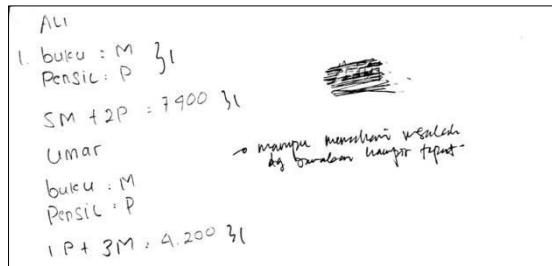 ALI
1. buku : M }1
Pensil : P
5M + 2P = 7900 }1
Umar
buku : M
Pensil : P
1P + 3M = 4.200 }1
→ mampu memahami masalah
dg jawaban hampir tepat.